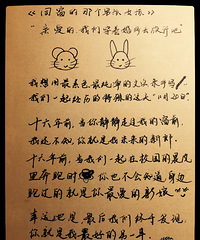 《回留的那个男孩女孩》
"亲爱的，我们穿着婚纱去放弃吧"
我想用最素色、最纯净的文字来书写
我们一起经历的特殊的这天"1月20日"
十六年前，当你静静走过我的窗前
我还不知，你就是我未来的新郎
十六年前，当我们一起在校园的晨风
里奔跑时 你也不会知道身边
跑过的就是你最爱的新娘
幸运地是 最后我们终于发现，
你就是我最好的另一半